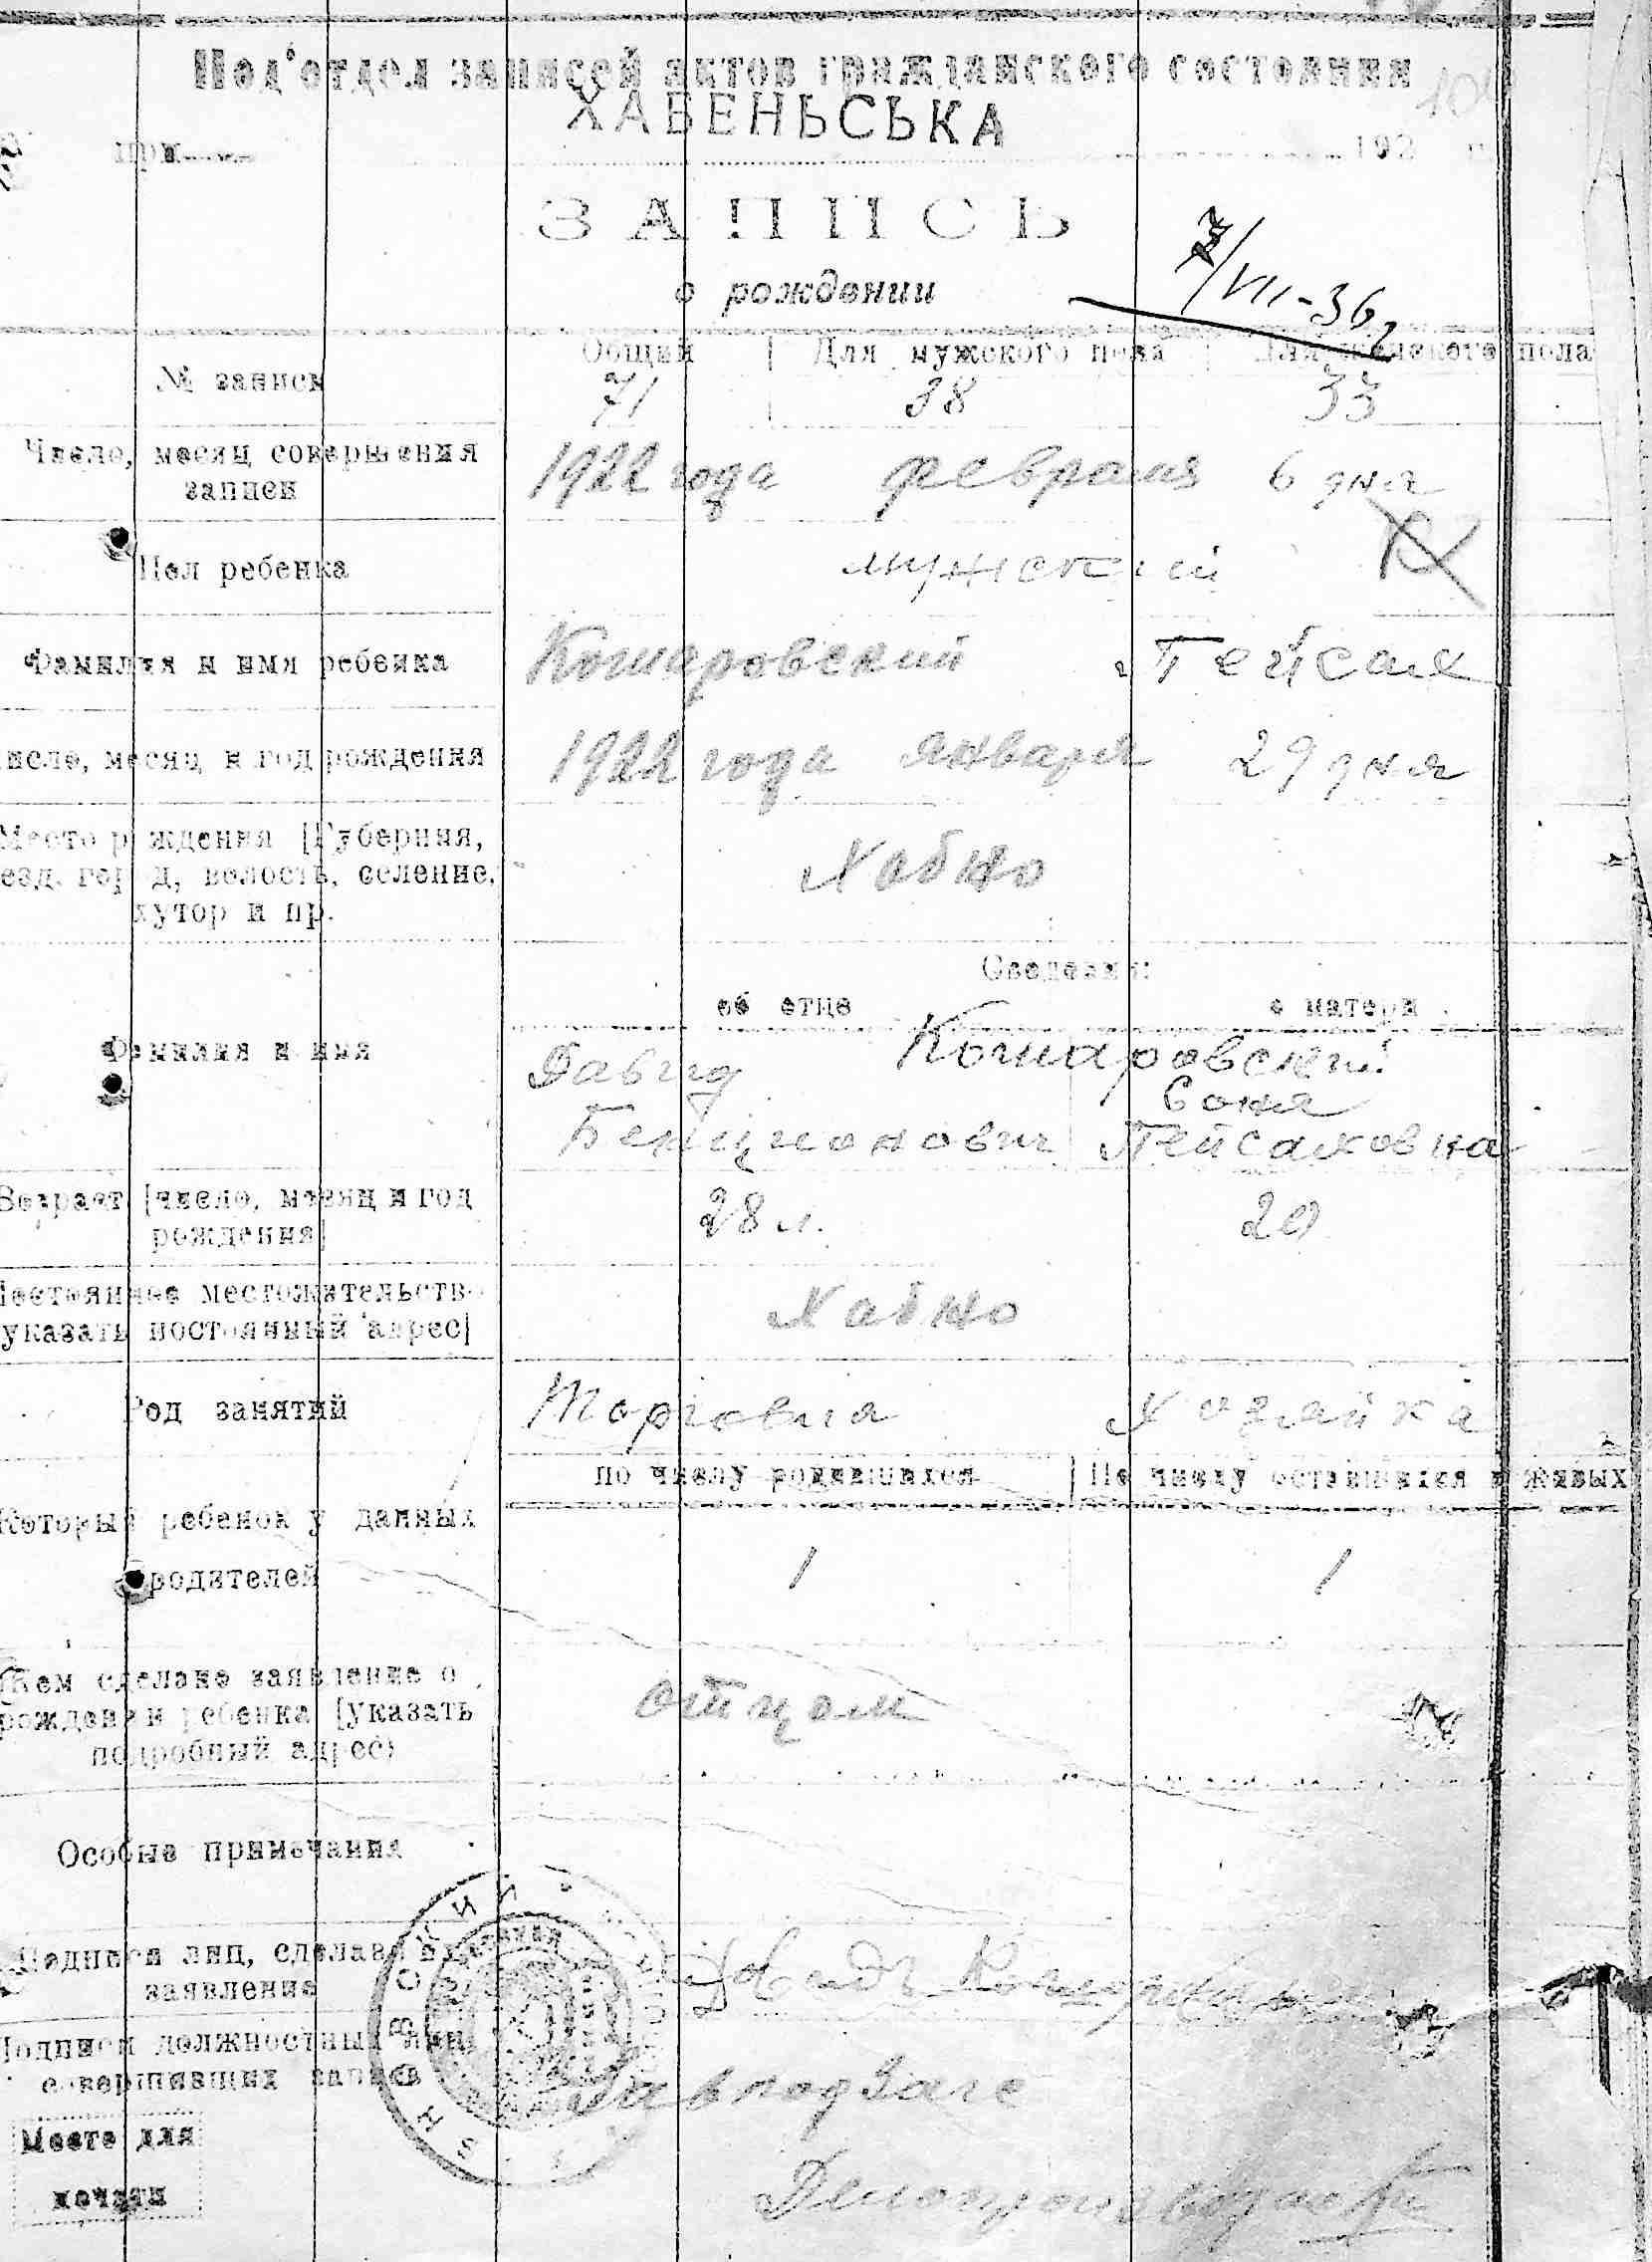 Под'отдел записей актов гражданского состояния
104
ХАБЕНЬСЬКА
при 192 г.
ЗАПИСЬ
7/VII-36
о рождении
Общий Для мужского пола Для женского пола
№ записи 71 38 33
Число, месяц совершения
записи
1922 года февраля 6 дня
Пол ребенка мужский
Фамилия и имя ребенка Кошаровский Пейсах
Число, месяц и год рождения 1922 года января 29 дня
Место рождения [Губерния,
уезд, город, волость, селение,
хутор и пр.
Хабно
Сведения:
об отце о матери
Фамилия и имя
Кошаровский
Давид Соня
Бенционович Пейсаховна
Возраст [число, месяц и год
рождения]
28 л. 20
Постоянное местожительство
указать постоянный адрес]
Хабно
Род занятий Торговля Хозяйка
по числу родившихся По числу оставшихся в живых
Который ребенок у данных
родителей
1 1
Кем сделано заявление о
рождении ребенка [указать
подробный адрес)
отцом
Особые примечания
Подписи лиц, сделавших
заявление
Подписи должностных лиц,
совершивших запись
Завподзагс
Место для
печати
Делопроизводитель